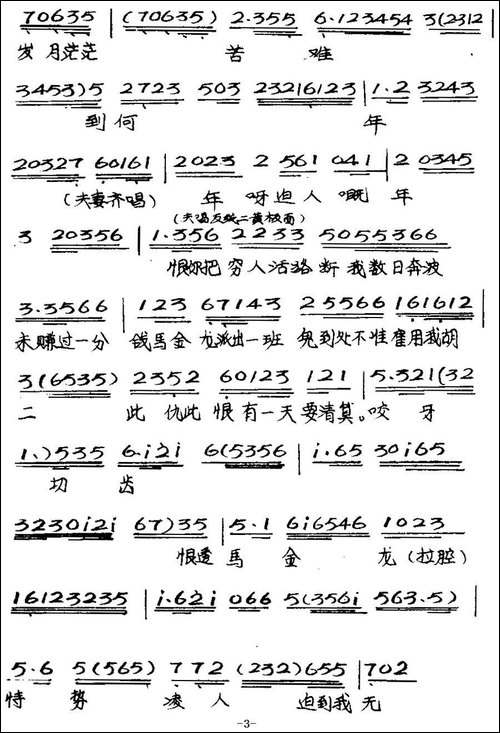 70635 | (70635) 2.355 6.123454 3(2312
岁月茫茫 苦 难
3453)5 2723 503 23216123 | 1.2 3243
到何 年
20327 60161 | 2023 2 561 041 | 2 0345
(夫妻齐唱) 年 呀迫人 嘅 年
(夫唱反线二黄板面)
3 20356 | 1.356 2233 5055366
恨你把 穷人活路 断 我数日奔波
3.3566 | 123 67143 25566 161612
未赚过一分 钱馬金 龙派出一班 到处不准雇用我胡
3(6535) 2352 60123 121 | 5.321(32
二 此 仇此 恨 有一天要清算。咬 牙
1.)535 6.i2i 6(5356 | i.65 30i65
切 齿
3230i2i 67)35 | 5.1 6i6546 1023
恨透 馬 金 龙(拉腔)
16123235 | i.62i 066 5(356i 563.5) |
5.6 5(565) 772 (232)655 | 702
恃 势 凌 人 迫到我 无
-3-